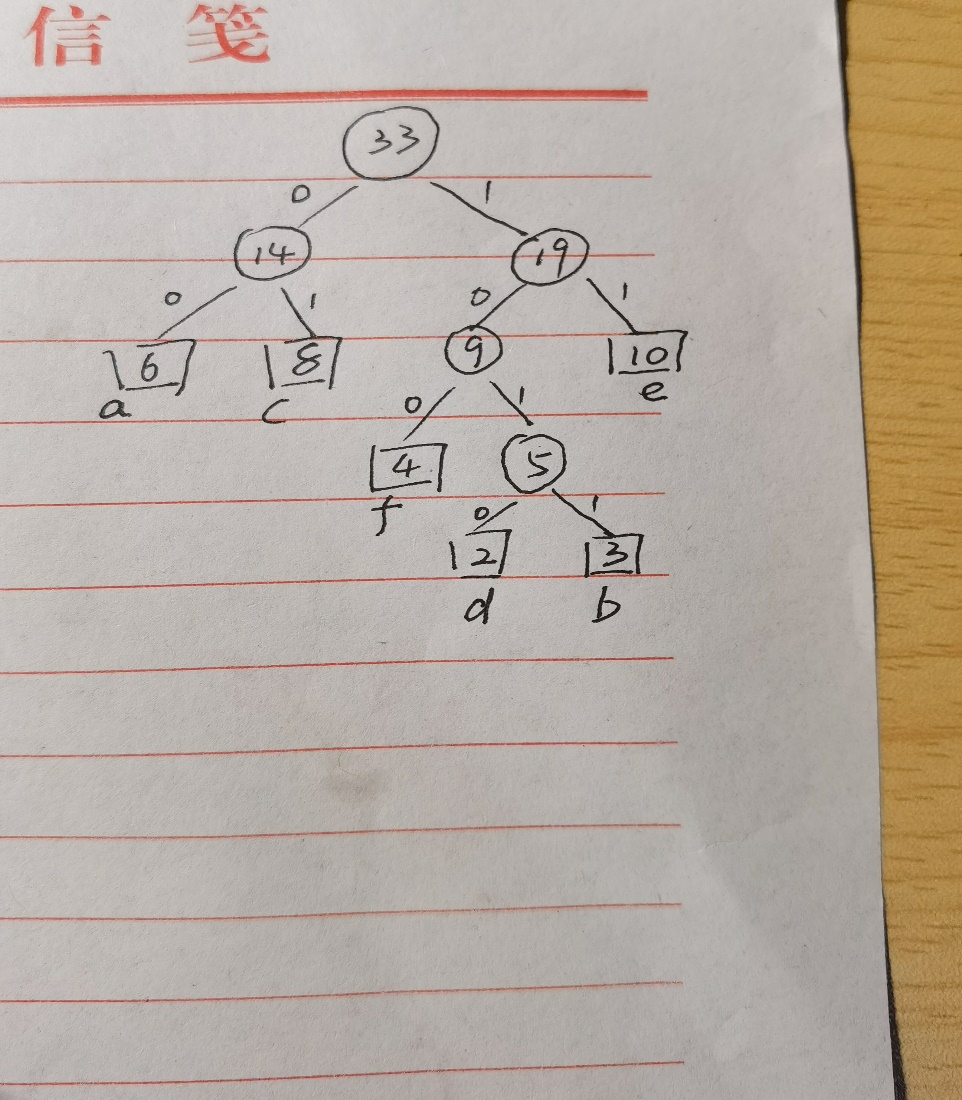 信 笺
33
0 1
14 19
0 1 0 1
6 8 9 10
a c e
0 1
4 5
f
0 1
2 3
d b